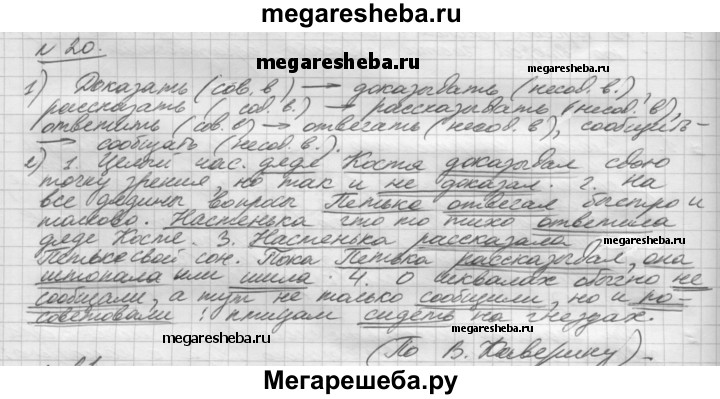 megaresheba.ru
№ 20.
megaresheba.ru
megaresheba.ru
1) Доказать (сов. в) → доказывать (несов. в.),
рассказать (сов. в.) → рассказывать (несов. в),
ответить (сов. в) → отвечать (несов. в), сообщить-
→ сообщать (несов. в.).
2) 1. Целый час деде Костя доказывал свою
точку зрения, но так и не доказал. 2. На
все дядины вопросы Петька отвечал быстро и
толково. Настенька что то тихо ответила
деде Косте. 3. Настенька рассказала
megaresheba.ru
Петьке свой сон. Пока Петька рассказывал, она
штопала или шила. 4. О шквалах обычно не
сообщали, а тут не только сообщили, но и по-
советовали: птицам сидеть на гнездах.
megaresheba.ru
(По В. Каверину)
Мегарешеба.ру